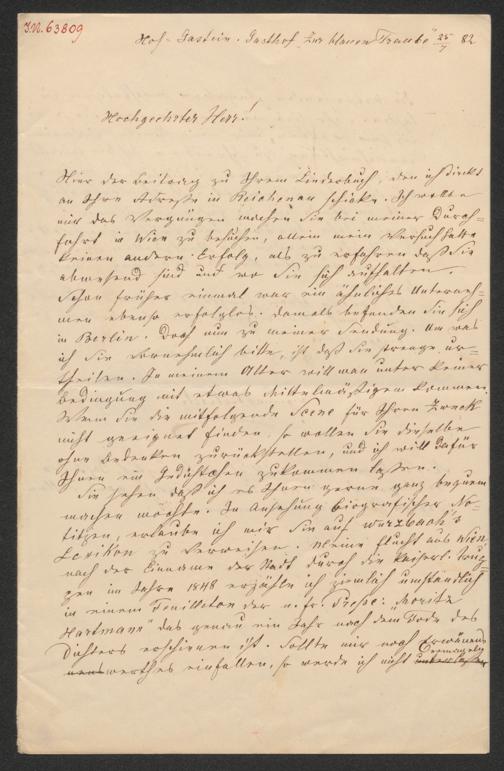 I.N. 63809
Hof-Gastein. Gasthof "Zur blauen Traube" 25/7 82
Hochgeehrter Herr!
Hier der Beitrag zu Ihrem Kinderbuch, den ich direkt
an Ihre Adresse in Reichenau schicke. Ich wollte
mir das Vergnügen machen Sie bei meiner Durch-
fahrt in Wien zu besuchen, allein mein Versuch hatte
keinen andern Erfolg, als zu erfahren daß Sie
abwesend sind und wo Sie sich aufhalten.
Schon früher einmal war ein ähnliches Unterneh-
men ebenso erfolglos. Damals befanden Sie sich
in Berlin. Doch nun zu meiner Sendung. Um was
ich Sie vornehmlich bitte, ist daß Sie strenge ur-
theilen. In meinem Alter will man unter keiner
Bedingung mit etwas Mittelmäßigem kommen.
Wenn Sie die mitfolgende Scene für Ihren Zweck
nicht geeignet finden, so wollen Sie dieselbe
ohne Bedenken zurückstellen, und ich will dafür
Ihnen ein Gedichtchen zukommen lassen.
Sie sehen daß ich es Ihnen gerne ganz bequem
machen möchte. In Ansehung biografischer No-
titzen, erlaube ich mir Sie auf Wurzbach's
Lexikon zu verweisen. Meine Flucht aus Wien
nach der Einname der Stadt durch die kaiserl. Trup-
pen im Jahre 1848 erzähle ich ziemlich umständlich
in einem Feuilleton der n. fr. Presse: "Moritz
Hartmann" das genau ein Jahr nach dem Tode des
Dichters erschienen ist. Sollte mir noch Erwänens-
nenswerthes einfallen, so werde ich nicht